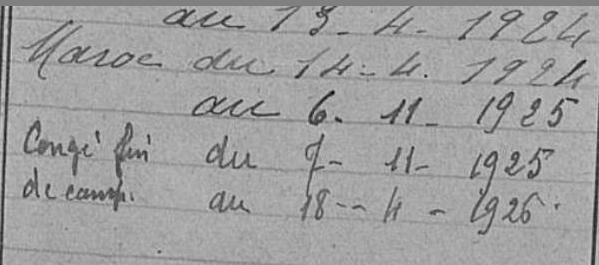 au 13. 4. 1924
Maroc du 14-4. 1924
au 6. 11- 1925
Congé fin du 7- 11- 1925
de camp. au 18-- 4 - 1926.